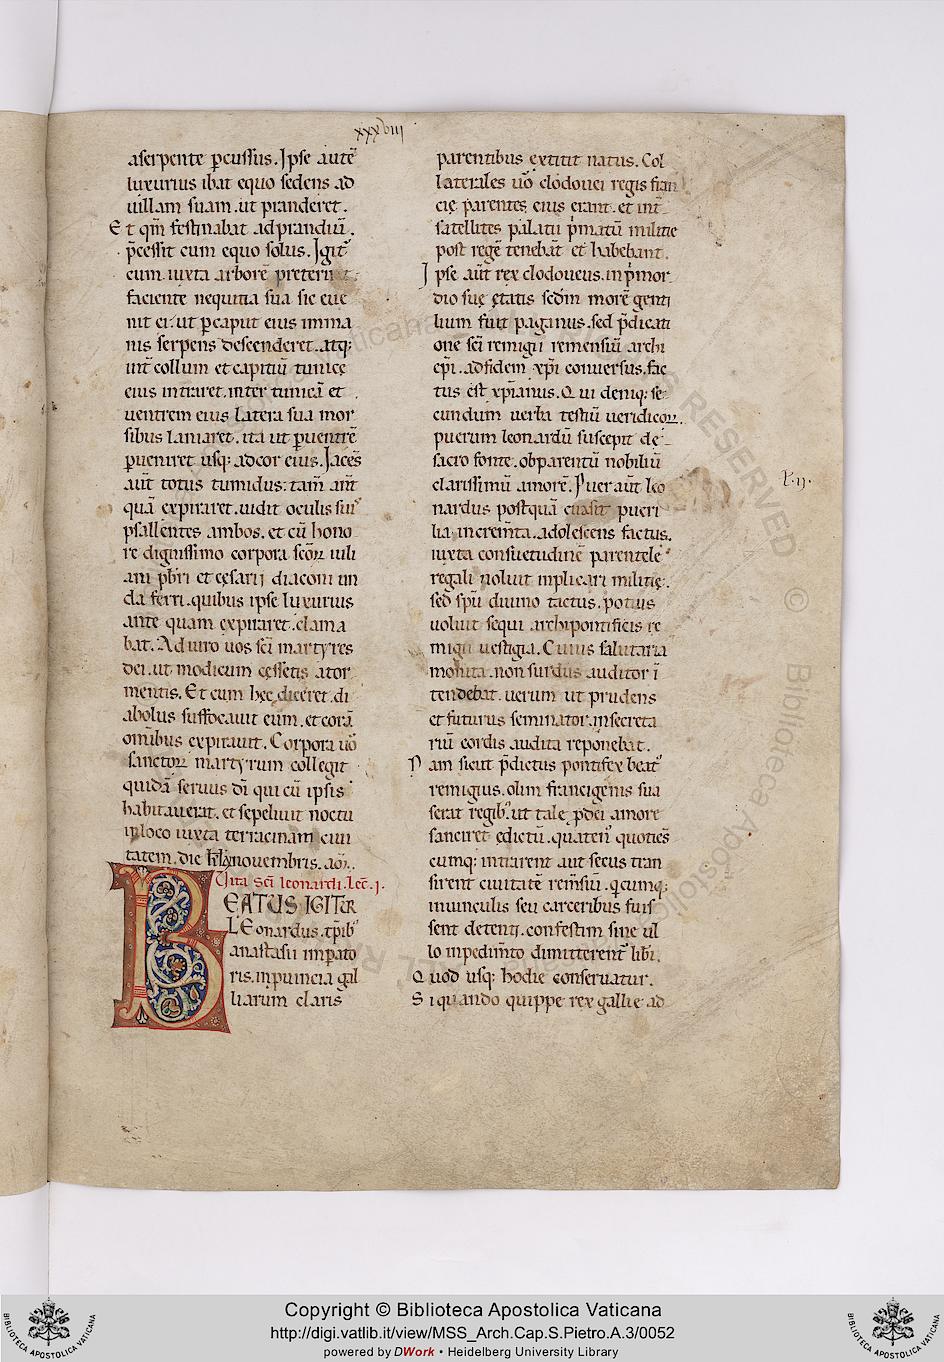 xxxviiii
a serpente ꝑcussus. Ipse autē
luxurius ibat equo sedens ad
uillam suam. ut pranderet.
Et qm̄ festinabat ad prandiū.
p̄cessit cum equo solus. Igit᷑
cum iuxta arborē preteriret.
faciente nequitia sua sic eue
nit ei. ut ꝑ caput eius imma
nis serpens descenderet. atq;
int̄ collum et capitiū tunicę
eius intraret. inter tunicā et
uentrem eius. Latera sua mor
sibus laniaret. ita ut ꝑ uentrē
ꝑueniret usq; ad cor eius. Iacēs
aūt totus tumidus: tam̄ ant
quā expiraret. uidit oculis suis
psallentes ambos. et cū hono
re dignissimo corpora sc̄oꝝ iuli
ani pbr̄i et cęsarij diaconi un
da ferri. quibus ipse luxurius
ante quam expiraret. clama
bat. Adiuro uos sc̄i martyres
dei. ut modicum cęssetis a tor
mentis. Et cum hęc diceret. di
abolus suffocauit eum. et corā
omībus expirauit. Corpora uō
sanctoꝝ martyrum collegit
quidā seruus dī qui cū ipsis
habitauerat. et sepeliuit noctu
in loco iuxta terracinam ciui
tatem. die kl̄ nouembris. am̄.
Vita Sc̄i leonardi. Lec̄. i.
BEATUS IGITUR
LEonardus. tp̄ib᷒
anastasii imperato
ris. in ꝓuincia gal
liarum claris
parentibus extitit natus. Col
laterales uō clodouei regis fran
cię parentes eius erant. et int̄
satellites palatii p̄matū militię
post regē tenebāt et habebant.
Ipse aūt rex clodoueus. in p̄mor
dio suę ętatis sēdm morē genti
lium fuit paganus. sed p̄dicati
one sc̄i remigii remensiū archi
ep̄i. ad fidem xp̄i conuersus. fac
tus ēst xp̄ianus. Qui deniq; se
cundum uerba testiū ueridicoꝝ.
puerum leonardū suscepit de
sacro fonte. ob parentū nobiliū
clarissimū amorē. Puer aūt leo
L. ii.
nardus postquā euasit pueri
lia increm̄ta. adolescens factus.
iuxta consuetudinē parentele
regali noluit inplicari militię.
sed sp̄u diuino tactus. potius
uoluit sequi archipontificis re
migii uestigia. Cuius salutaria
monita. non surdus auditor ī
tendebat. uerum ut prudens
et futurus seminator. in secreta
riū cordis audita reponebat.
Nam sicut p̄dictus pontifex beat᷒
remigius. olim francigenis sua
serat regib᷒. ut tale ꝓ dei amore
sanciret edictū. quaten᷒ quotiēs
cumq; intrarent aut secus tran
sirent ciuitatē rem̄siū. q̄cumq;
inuinculis seu carceribus fuis
sent detenti. confestim sine ul
lo inpedim̄to dimitterent᷑ libi.
Quod usq; hodie conseruatur.
Si quando quippe rex gallię ad
Copyright © Biblioteca Apostolica Vaticana
http://digi.vatlib.it/view/MSS_Arch.Cap.S.Pietro.A.3/0052
powered by DWork • Heidelberg University Library
BIBLIOTECA APOSTOLICA VATICANA
BIBLIOTECA APOSTOLICA VATICANA